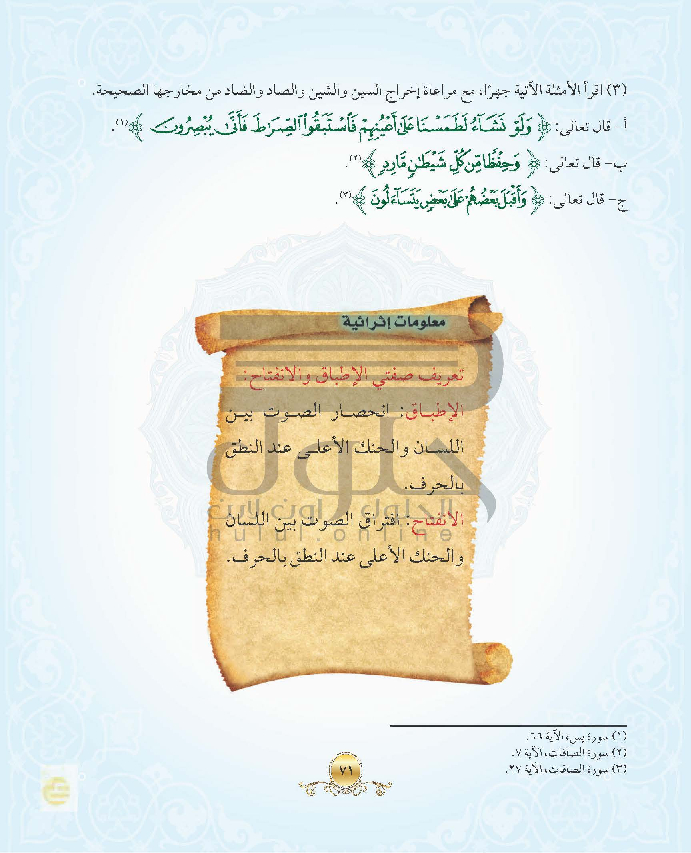 (٣) اقرأ الأمثلة الآتية جهرًا، مع مراعاة إخراج السين والشين والصاد والضاد من مخارجها الصحيحة.
أ- قال تعالى: ﴿ وَلَوْ نَشَآءُ لَطَمَسْنَا عَلَىٰٓ أَعْيُنِهِمْ فَٱسْتَبَقُوا۟ ٱلصِّرَٰطَ فَأَنَّىٰ يُبْصِرُونَ ﴾(١).
ب- قال تعالى: ﴿ وَحِفْظًا مِّن كُلِّ شَيْطَٰنٍ مَّارِدٍ ﴾(٢).
ج- قال تعالى: ﴿ وَأَقْبَلَ بَعْضُهُمْ عَلَىٰ بَعْضٍ يَتَسَآءَلُونَ ﴾(٣).
معلومات إثرائية
تعريف صفتي الإطباق والانفتاح:
الإطباق: انحصار الصوت بين
اللسان والحنك الأعلى عند النطق
بالحرف.
الانفتاح: افتراق الصوت بين اللسان
والحنك الأعلى عند النطق بالحرف.
حلول
الحلول اون لاين
hulul.online
(١) سورة يس، الآية ٦٦.
(٢) سورة الصافات، الآية ٧.
(٣) سورة الصافات، الآية ٢٧.
٧١